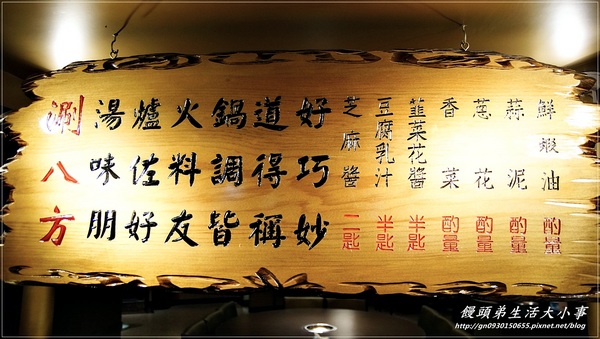 涮湯爐火鍋道好
八味佐料調得巧
方朋好友皆稱妙
芝麻醬 二匙
豆腐乳汁 半匙
韮菜花醬 半匙
香菜 酌量
葱花 酌量
蒜泥 酌量
鮮蝦油 酌量
饅頭弟生活大小事
http://gn0930150655.pixnet.net/blog